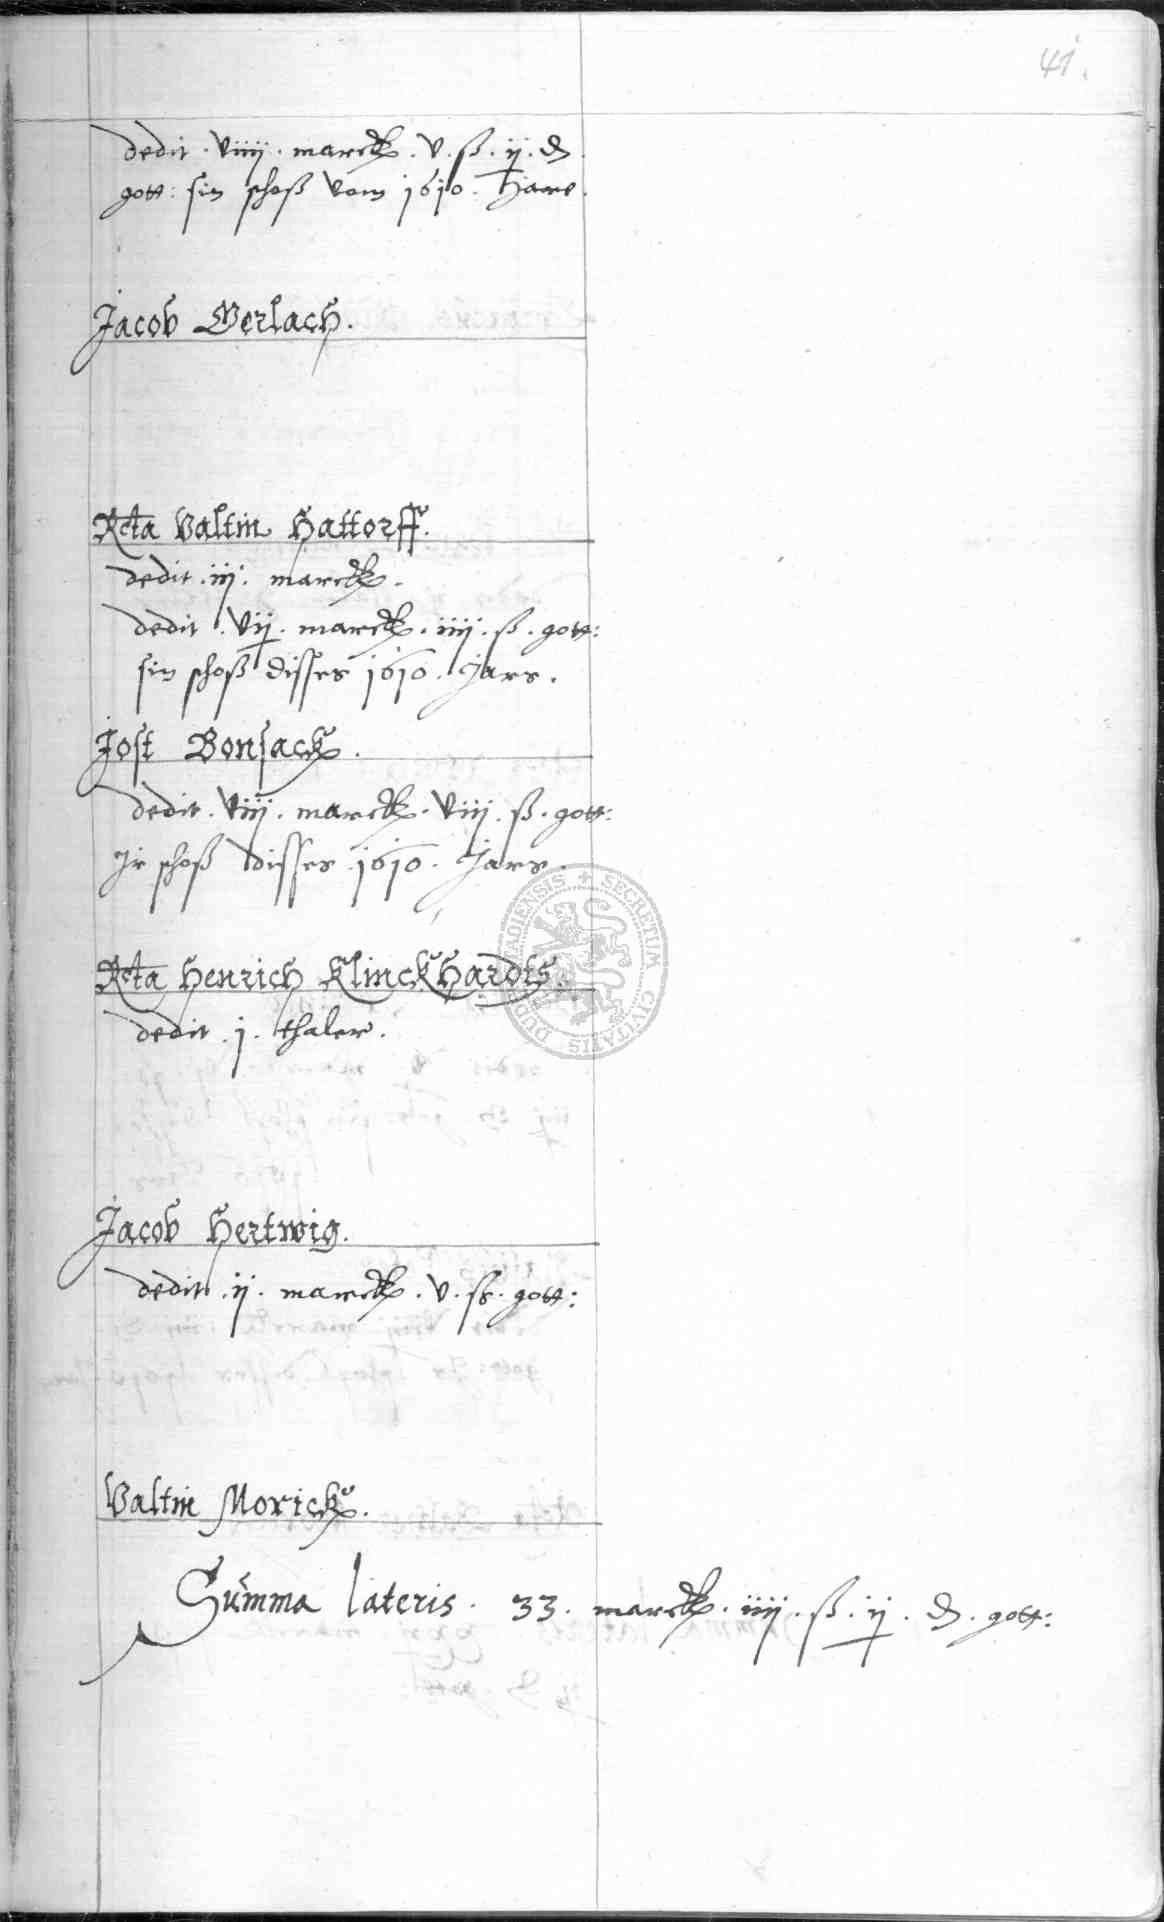 41.
dedit . viiij . marck . v . ß . ij . ₰
gott: sin schoß vom 1610. Jare.
Jacob Gerlach.
Rcta Valtin Hattorff.
dedit . iij . marck .
dedit . vij . marck . iiij . ß . gott:
sin schoß disses 1610. Jars .
Jost Bonsack .
dedit . viiij . marck . viij . ß . gott:
Jr schoß disses 1610. Jars .
Rcta Henrich Klinckhardts.
dedit . j . thaler .
Jacob Hertwig.
dedit . ij . marck . v . ß . gott:
Valtin Morick .
Summa lateris . 33 . marck . iiij . ß . ij . ₰ . gott:
SECRETUM CIVITATIS DUD ADIENSIS